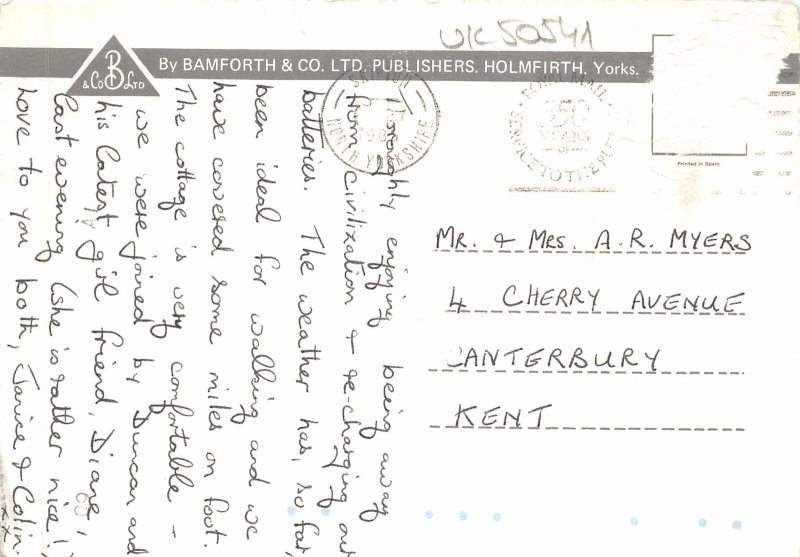 UK50541
B
& Co LTD
By BAMFORTH & CO. LTD. PUBLISHERS. HOLMFIRTH, Yorks.
SKIPTON
NORTH YORKSHIRE
ROYAL MAIL
350
YEARS
OF
SERVICE TO THE PUBLIC
Printed in Spain
Thoroughly enjoying being away
from civilization & re-charging our
batteries. The weather has, so far,
been ideal for walking and we
have covered some miles on foot.
The cottage is very comfortable -
we were joined by Duncan and
his latest girl friend, Diane,
last evening (she is rather nice!)
Love to you both, Janice & Colin.
xx
MR. & MRS. A. R. MYERS
4 CHERRY AVENUE
CANTERBURY
KENT